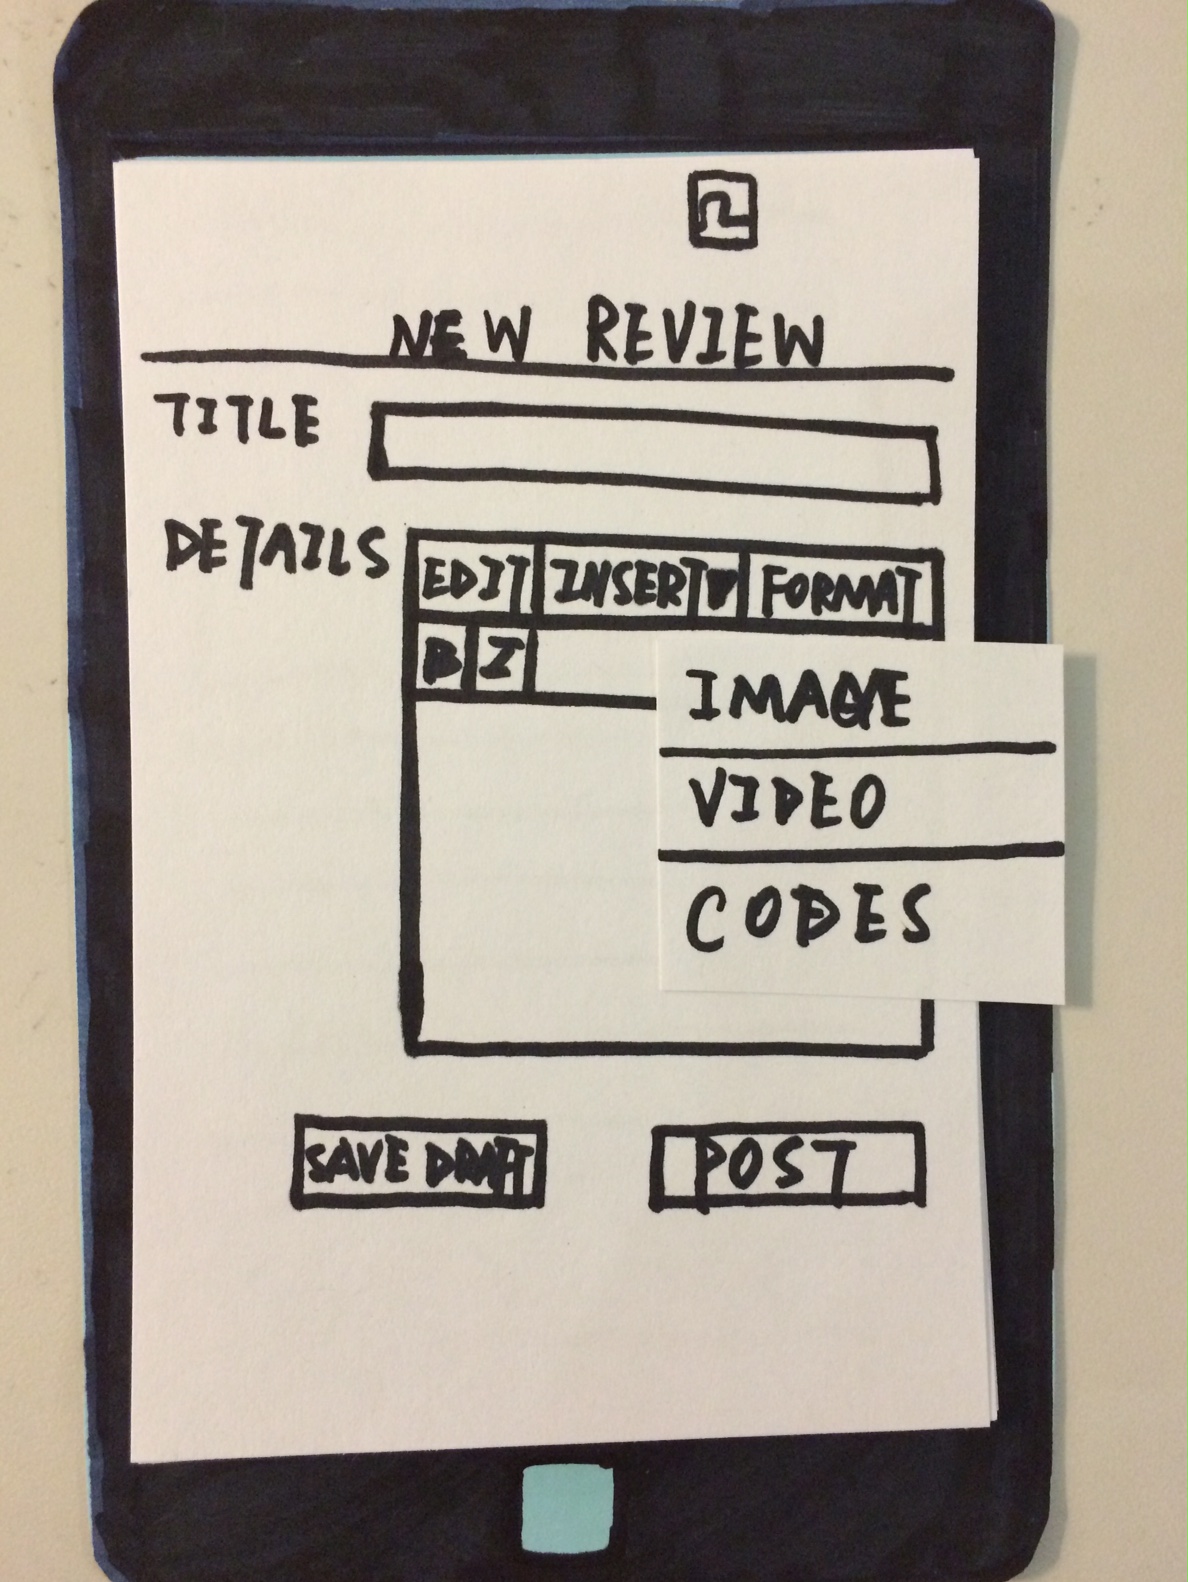 NEW REVIEW
TITLE
DETAILS
EDIT INSERT▼ FORMAT
B I
IMAGE
VIDEO
CODES
SAVE DRAFT
POST